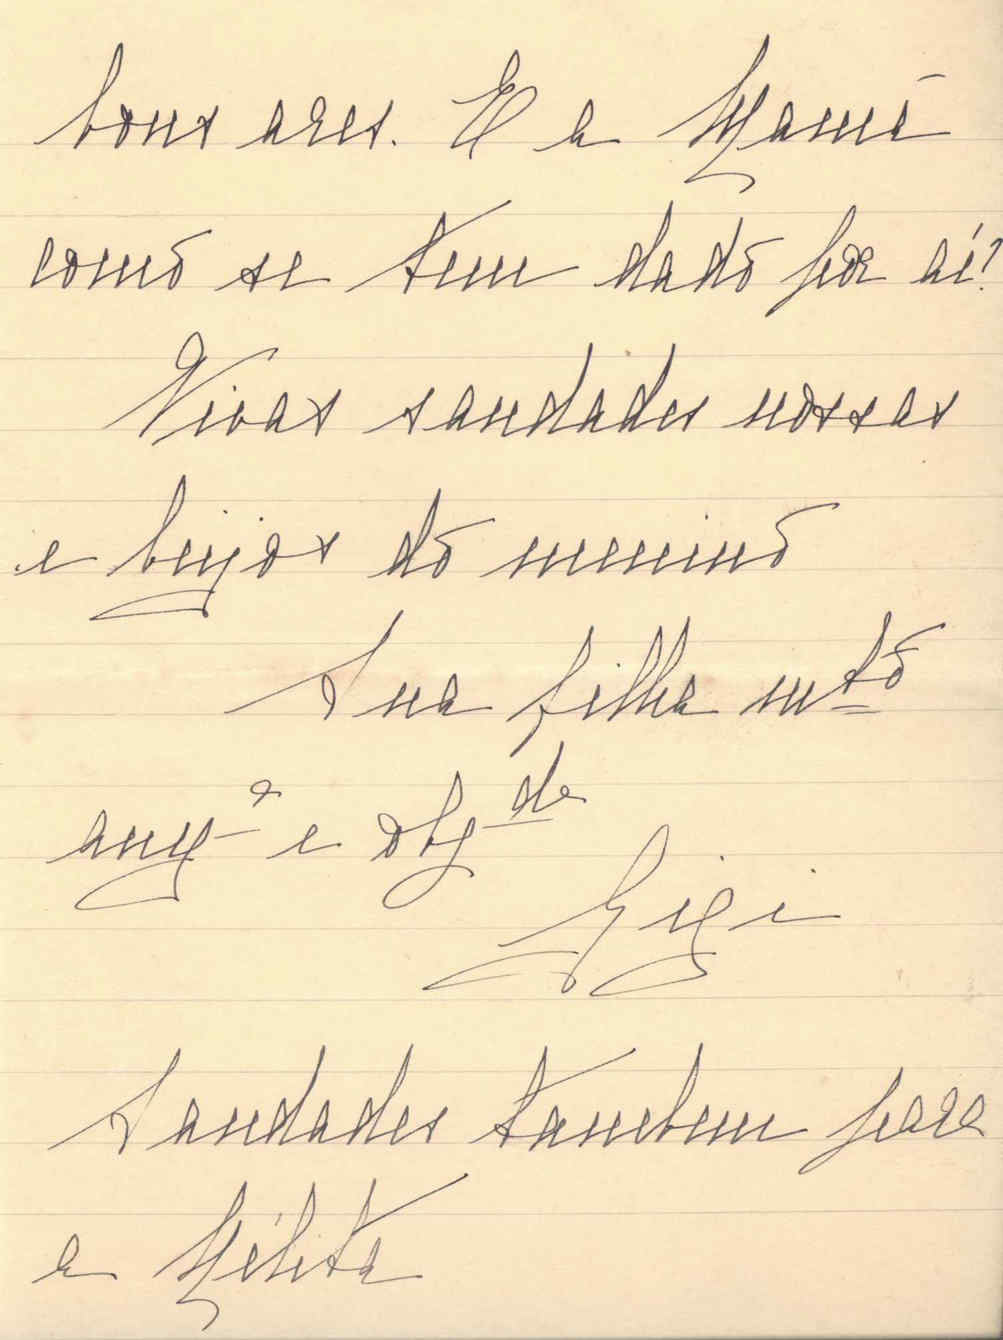 bons ares. E a Mamã
como se tem dado por aí?
Vivas saudades nossas
e beijos do menino
Sua filha mto
amga e obgde
Gigi
Saudades tambem para
a Mélita